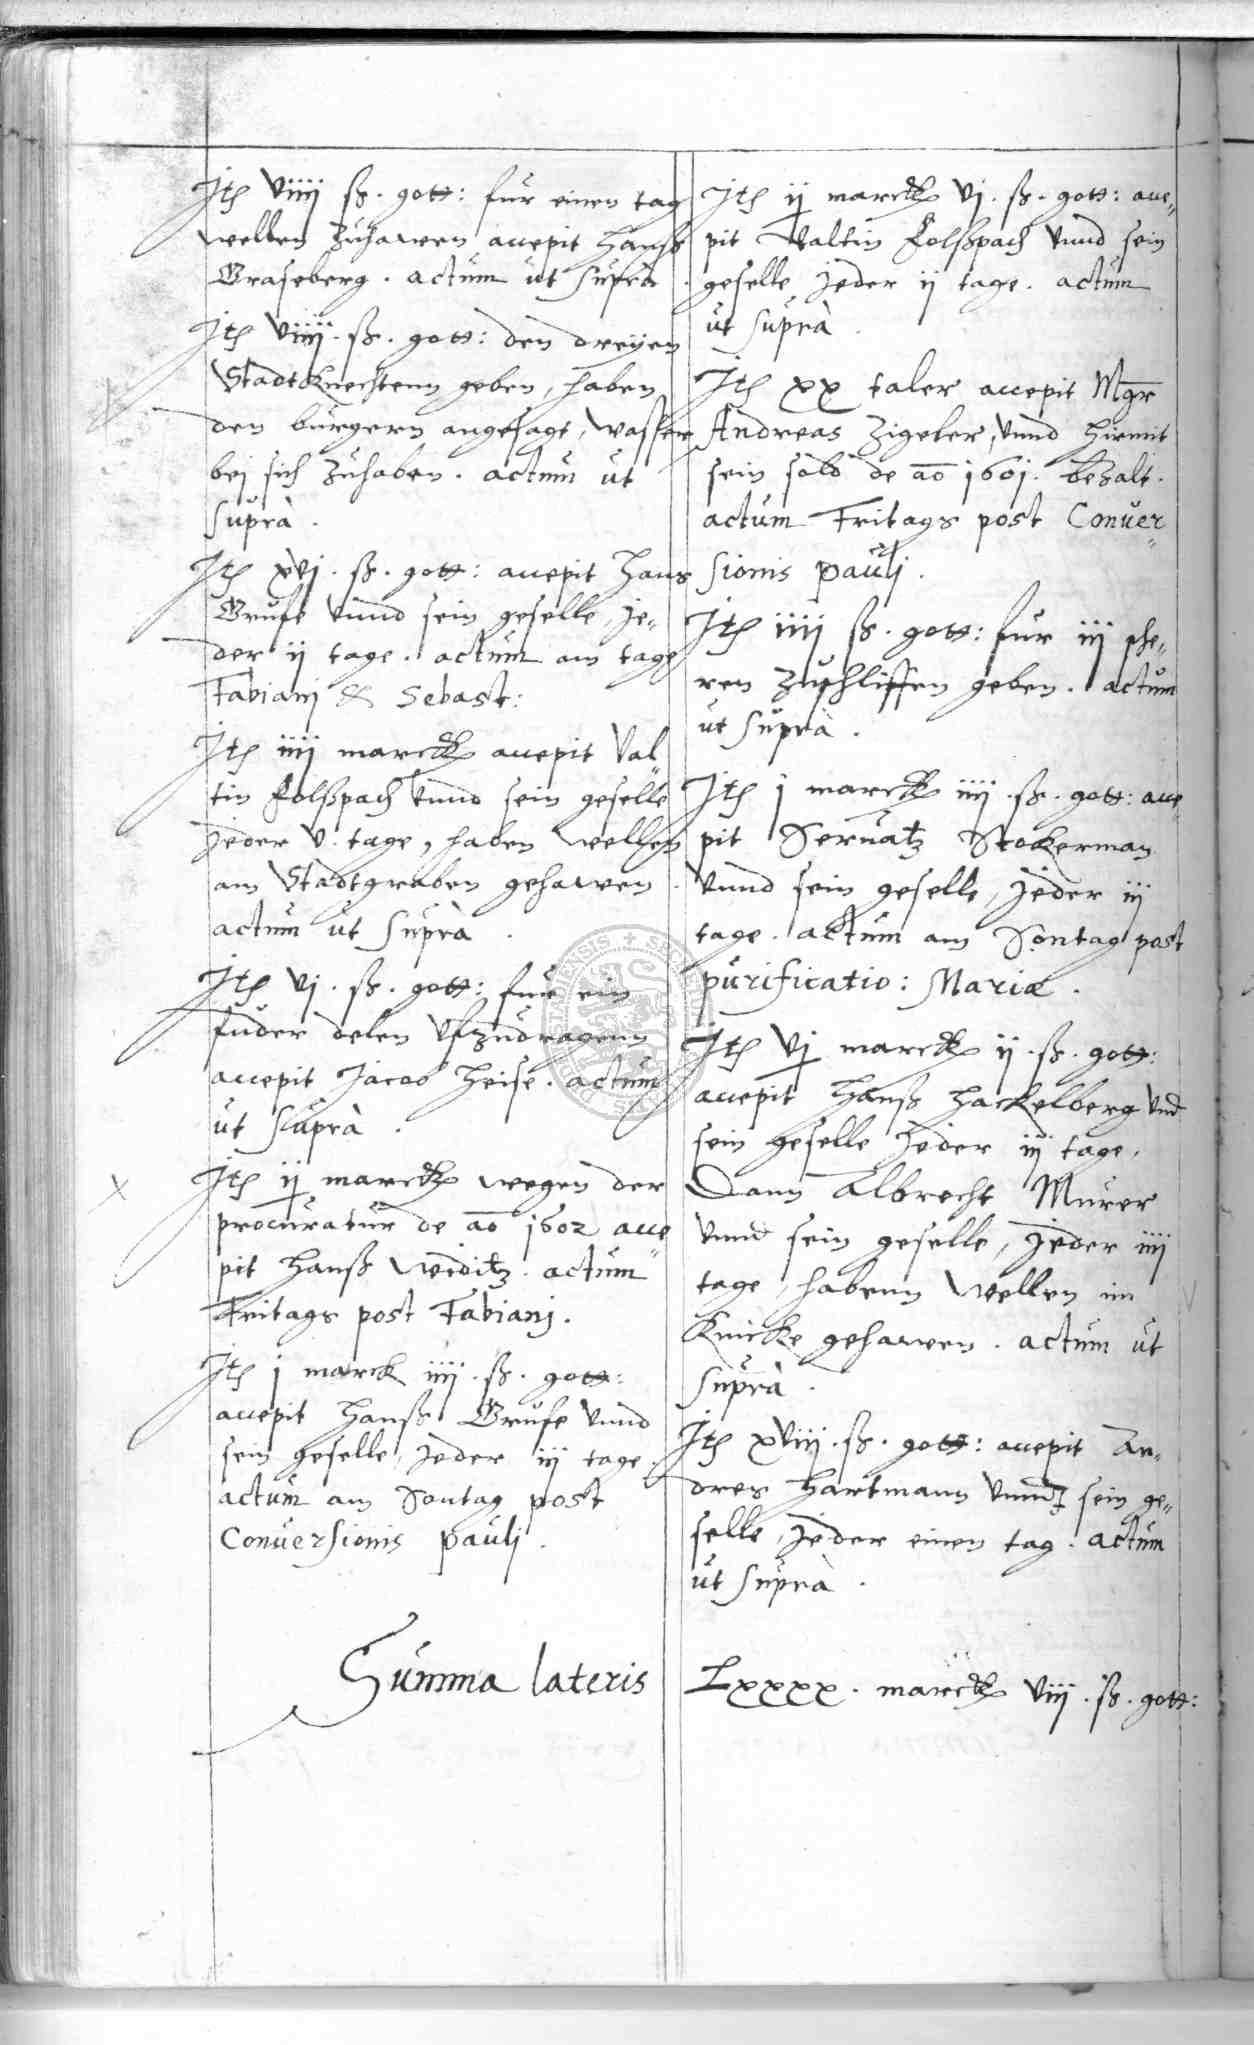 Jtẽ viiij ß. gott: fur einen tag
wellen zuhawen accepit Hanß
Graseberg. actum ut supra.
Jtẽ viiij. ß. gott: den dreyen
Stadtknechtenn geben, haben
den burgern angesagt, wasser
bei sich zuhaben. actum ut
supra.
Jtẽ xvj. ß. gott: accepit Hans
Grufe vnnd sein geselle, je„
der ij tage. actum am tage
Fabianj & Sebast:
Jtẽ iiij marck accepit Val„
tin Folßpach vnnd sein geselle
jeder v. tage, haben wellen
am Stadtgraben gehawen.
actum ut supra.
Jtẽ vj. ß. gott: fur ein
fuder delen vfzudragenn
accepit Jacob Heise. actum
ut supra.
Jtẽ ij marck wegen der
procuratur de ao 1602 acce„
pit Hanß Weditz. actum
Fritags post Fabianj.
Jtẽ j marck iiij. ß. gott:
accepit Hanß Grufe vnnd
sein geselle, jeder iij tage.
actum am Sontag post
Conuersionis paulj.
Summa lateris
Jtẽ ij marck vj. ß. gott: acce„
pit Valtin Folßpach vnnd sein
geselle jeder ij tage. actum
ut supra.
Jtẽ xx taler accepit Mgr
Andreas Zigeler, vnnd hiemit
sein sold de ao 1601. bezalt.
actum Fritags post Conuer„
sionis paulj.
Jtẽ iiij ß. gott: fur iij sche„
ren zuschliffen geben. actum
ut supra.
Jtẽ j marck iiij. ß. gott: acce„
pit Seruatz Stockerman
vnnd sein geselle, jeder iij
tage. actum am Sontag post
purificatio: Mariæ.
Jtẽ vj marck ij. ß. gott:
accepit Hanß Hackelberg vnd
sein geselle jeder iij tage,
Dann Albrecht Murer
vnnd sein geselle, jeder iiij
tage, habenn wellen im
Knicke gehawen. actum ut
supra.
Jtẽ xviij. ß. gott: accepit An„
dres Hartmann vnnd sein ge„
selle, jeder einen tag. actum
ut supra.
Lxxxx. marck viij. ß. gott: